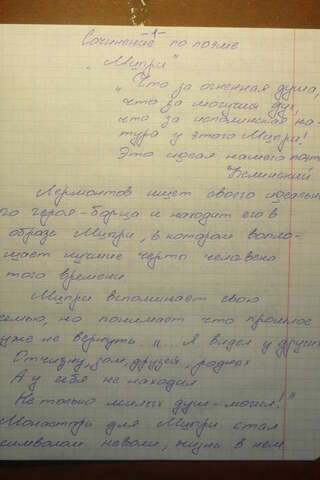 -1-
Сочинение по поэме
„Мцыри"
„Что за огненная душа,
что за могучий дух,
что за исполинская на-
тура у этого Мцыри!
Это идеал нашего поэта
Белинский
Лермонтов ищет своего идеально
го героя-борца и находит его в
образе Мцыри, в котором вопло-
щает лучшие черты человека
того времени
Мцыри вспоминает свою
семью, но понимает что прошлое
уже не вернуть „ Я видел у других
Отчизну, дом, друзей родных
А у себя не находил
Не только милых душ-могил!"
Монастырь для Мцыри стал
символом неволи, жизнь в нем